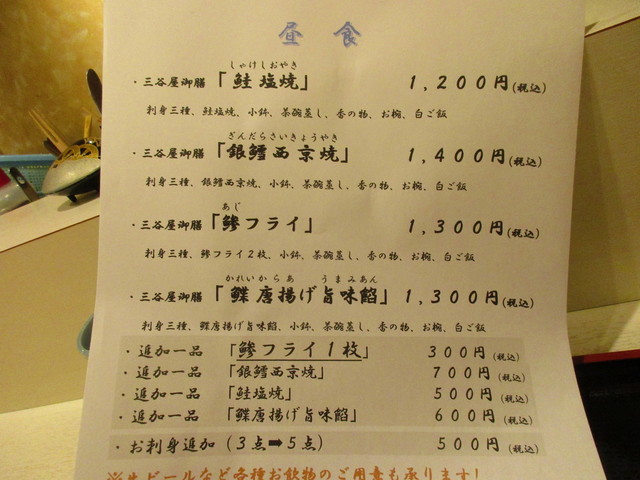 昼食
しゃけしおやき
・三谷屋御膳「鮭塩焼」 1,200円(税込)
刺身三種、鮭塩焼、小鉢、茶碗蒸し、香の物、お椀、白ご飯
ぎんだらさいきょうやき
・三谷屋御膳「銀鱈西京焼」 1,400円(税込)
刺身三種、銀鱈西京焼、小鉢、茶碗蒸し、香の物、お椀、白ご飯
あじ
・三谷屋御膳「鯵フライ」 1,300円(税込)
刺身三種、鯵フライ2枚、小鉢、茶碗蒸し、香の物、お椀、白ご飯
かれいからあ うまみあん
・三谷屋御膳「鰈唐揚げ旨味餡」 1,300円(税込)
刺身三種、鰈唐揚げ旨味餡、小鉢、茶碗蒸し、香の物、お椀、白ご飯
・追加一品 「鯵フライ1枚」 300円(税込)
・追加一品 「銀鱈西京焼」 700円(税込)
・追加一品 「鮭塩焼」 500円(税込)
・追加一品 「鰈唐揚げ旨味餡」 600円(税込)
・お刺身追加(3点➡5点) 500円(税込)
※生ビールなど各種お飲物のご用意も承ります!